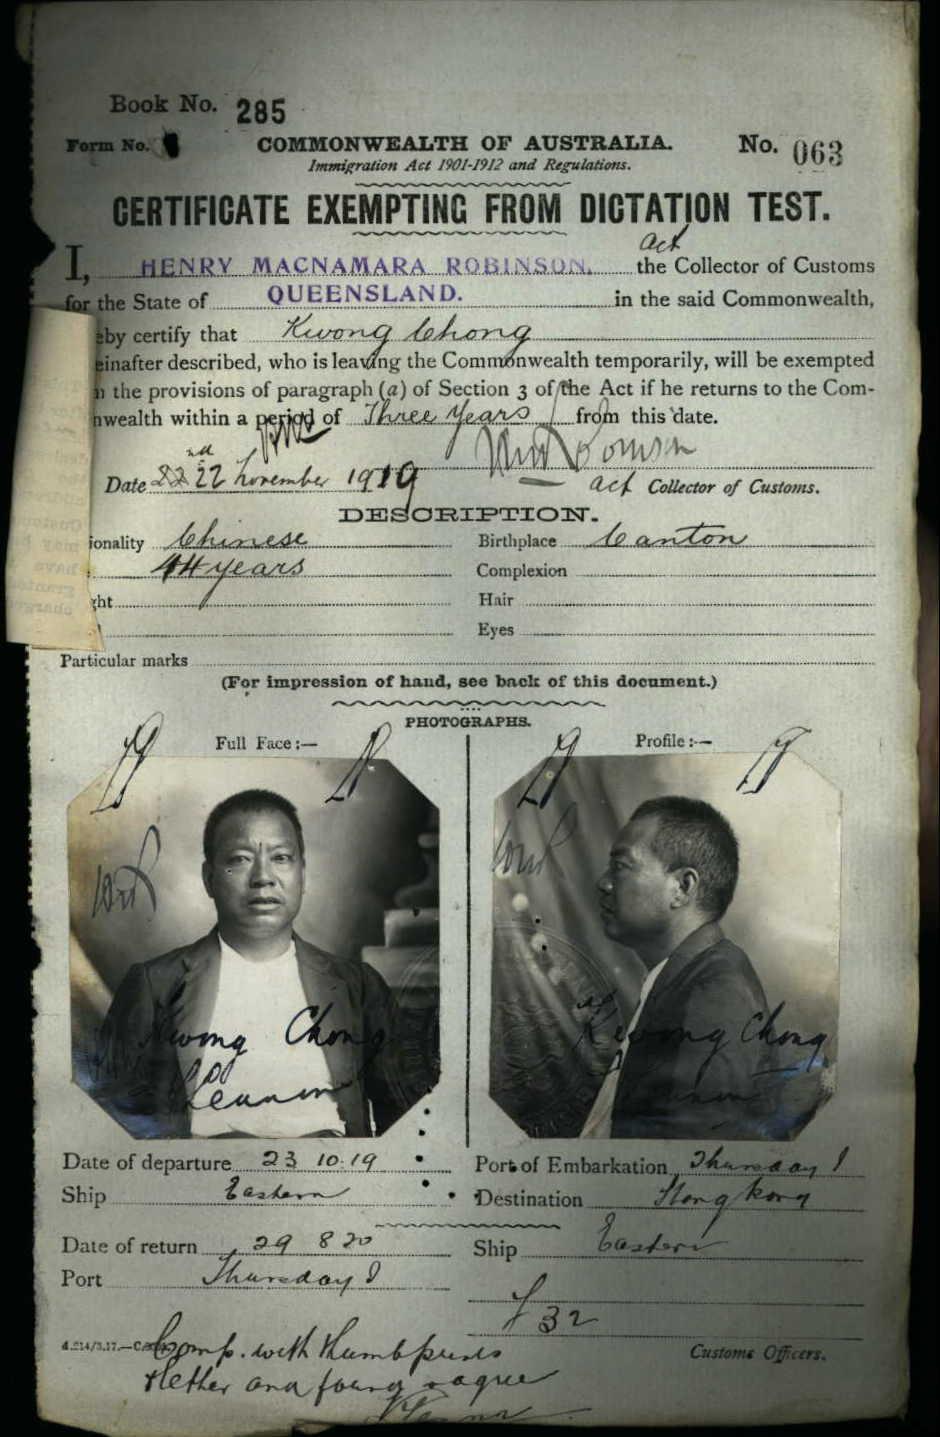 Book No. 285
Form No.
COMMONWEALTH OF AUSTRALIA.
No. 063
Immigration Act 1901-1912 and Regulations.
CERTIFICATE EXEMPTING FROM DICTATION TEST.
act
I, HENRY MACNAMARA ROBINSON, the Collector of Customs
for the State of QUEENSLAND. in the said Commonwealth,
eby certify that Kwong Chong
einafter described, who is leaving the Commonwealth temporarily, will be exempted
the provisions of paragraph (a) of Section 3 of the Act if he returns to the Com-
nwealth within a period of Three Years from this date.
Date 22nd November 1919
act Collector of Customs.
DESCRIPTION.
ionality Chinese Birthplace Canton
44 years Complexion
ght Hair
Eyes
Particular marks
(For impression of hand, see back of this document.)
PHOTOGRAPHS.
Full Face:— Profile:—
Kwong Chong
Kwong Chong
Date of departure 23 10.19 Port of Embarkation Thursday I
Ship Eastern Destination Hong Kong
Date of return 29 8 20 Ship Eastern
Port Thursday I
32
Comp. with thumbprints
and found agree
Customs Officers.